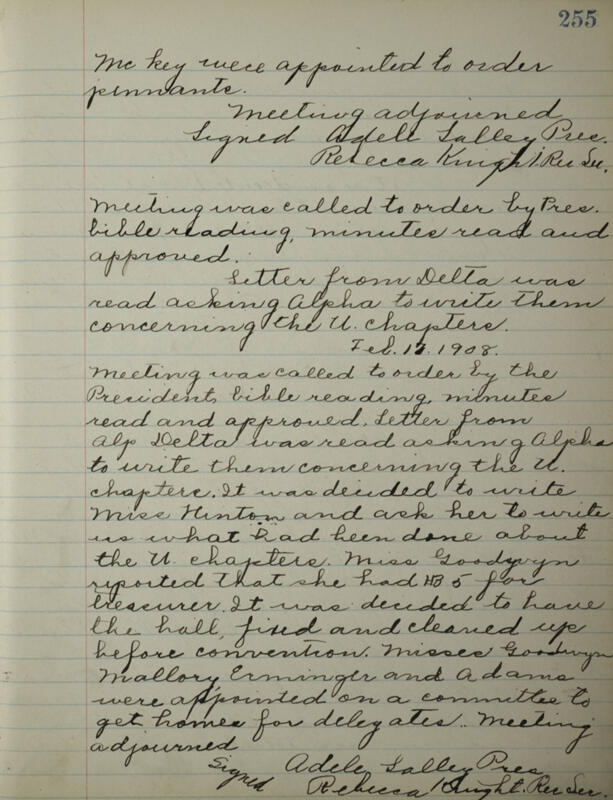 255
Mc Key were appointed to order
pennants.
Meeting adjourned
Signed Adele Salley Pres.
Rebecca Knight Rec Sec.
Meeting was called to order by Pres.
bible reading, minutes read and
approved.
Letter from Delta was
read asking Alpha to write them
concerning the U. chapters.
Feb. 17. 1908.
Meeting was called to order by the
President, bible reading, minutes
read and approved. Letter from
Alp Delta was read asking Alpha
to write them concerning the U.
chapters. It was decided to write
Miss Hinton and ask her to write
us what had been done about
the U. chapters. Miss Goodwyn
reported that she had 5 for
treasurer. It was decided to have
the hall, fixed and cleaned up
before convention. Misses Goodwyn
Mallory, Erminger and Adams
were appointed on a committee to
get homes for delegates. Meeting
adjourned
Signed Adele Salley Pres
Rebecca Knight. Rec Sec.